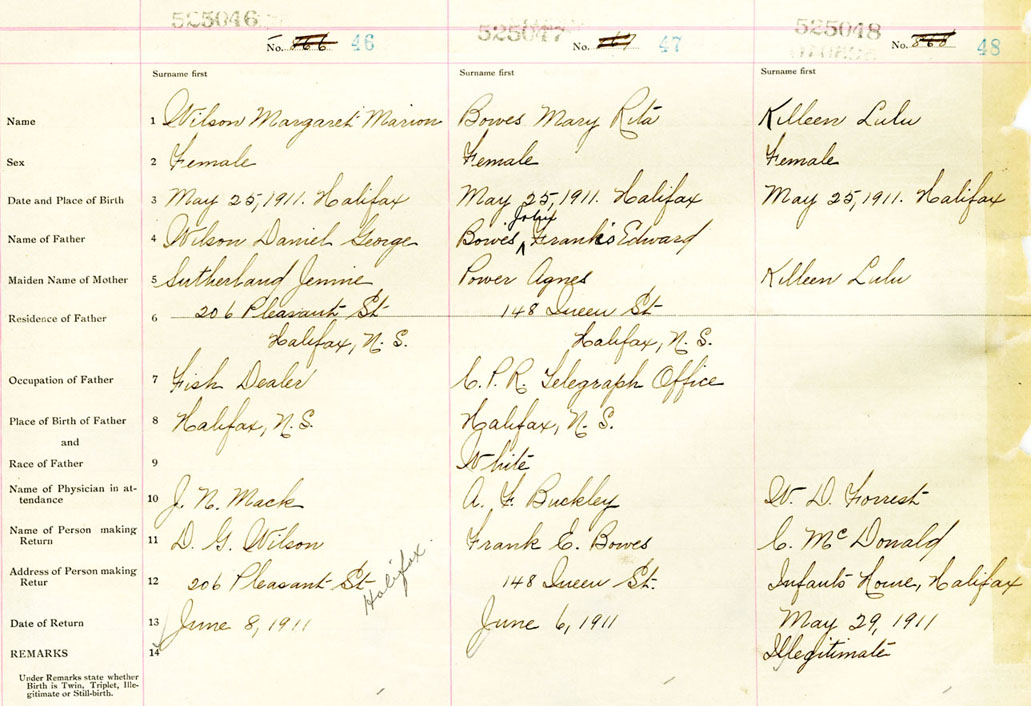 525046 525047 525048
No. 866 46 No. 867 47 No. 868 48
Surname first Surname first Surname first
Name 1 Wilson Margaret Marion Bowes Mary Rita Killeen Lulu
Sex 2 Female Female Female
Date and Place of Birth 3 May 25, 1911. Halifax May 25, 1911. Halifax May 25, 1911. Halifax
John
Name of Father 4 Wilson Daniel George Bowes Frank Edward
Maiden Name of Mother 5 Sutherland Jennie Power Agnes Killeen Lulu
206 Pleasant St 148 Queen St
Residence of Father 6
Halifax, N. S. Halifax, N. S.
Occupation of Father 7 Fish Dealer C. P. R. Telegraph Office
Place of Birth of Father 8 Halifax, N.S. Halifax, N. S.
and
Race of Father 9 White
Name of Physician in at-
tendance 10 J. N. Mack A. F. Buckley W. D. Forrest
Name of Person making
Return 11 D. G. Wilson Frank E. Bowes C. McDonald
Address of Person making
Retur 12 206 Pleasant St Halifax. 148 Queen St. Infants Home, Halifax
Date of Return 13 June 8, 1911 June 6, 1911 May 29, 1911
REMARKS 14 Illegitimate
Under Remarks state whether
Birth is Twin, Triplet, Ille-
gitimate or Still-birth.